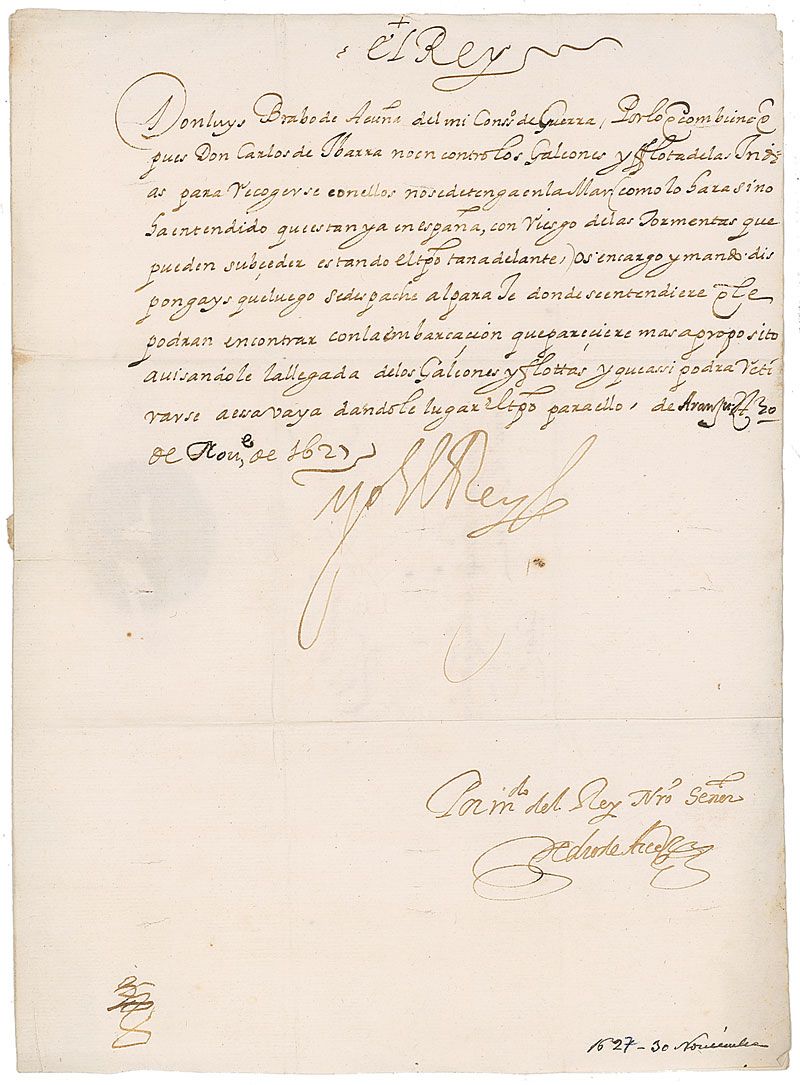 el Rey
Don luys Brabo de Acuña del mi Consº de Guerra, Por lo q combiene q
pues Don Carlos de Ibarra no en contro los Galeones y fflota de las Indi-
as para Recogerse con ellos no se detenga en la Mar como lo hara si no
ha entendido que estan ya en españa, con Riesgo de las Tormentas que
pueden subçeder estando el tpo tan adelante, os encargo y mando dis
pongays que luego se despache al para Je donde se entendiere q le
podran encontrar con la embarcaçion que pareçiere mas a proposito
auisandole la llegada de los Galeones y fflottas y que assi podra Reti
rarse a essa vaya dandole lugar el tpo para ello, de Aranjuez 30
de Nouᵉ de 1627
yo el Rey
Por mdo del Rey Nro Señor
Pedro de
1627 - 30 Noviembre